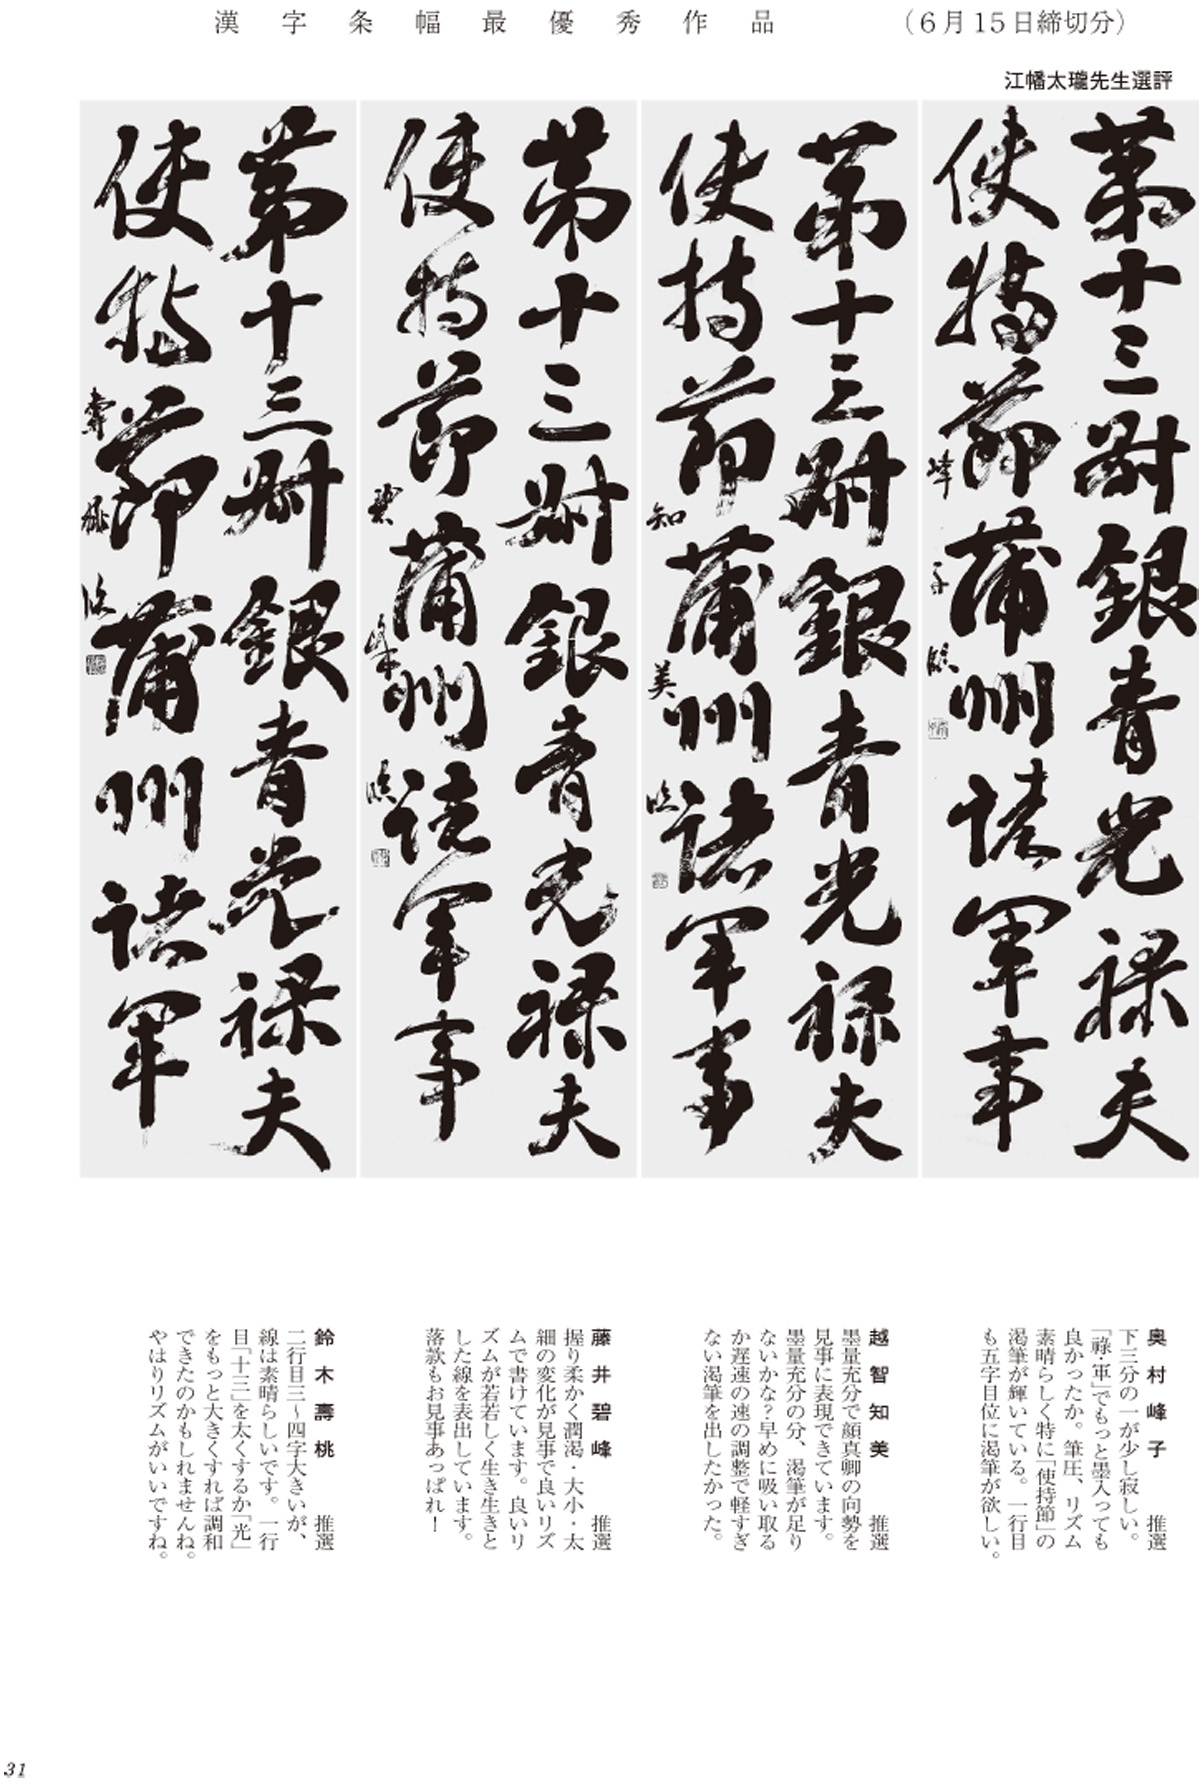 漢字条幅最優秀作品 （６月１５日締切分）
江幡太瓏先生選評
第十三姪銀青光禄夫
使持節蒲州諸軍事
峰子臨
第十三姪銀青光禄夫
使持節蒲州諸軍事
知美臨
第十三姪銀青光禄夫
使持節蒲州諸軍事
碧峯臨
第十三姪銀青光禄夫
使持節蒲州諸軍
壽桃臨
奥村峰子 推選
下三分の一が少し寂しい。
「禄・軍」でもっと墨入っても
良かったか。筆圧、リズム
素晴らしく特に「使持節」の
渇筆が輝いている。一行目
も五字目位に渇筆が欲しい。
越智知美 推選
墨量充分で顔真卿の向勢を
見事に表現できています。
墨量充分の分、渇筆が足り
ないかな？早めに吸い取る
か遅速の速の調整で軽すぎ
ない渇筆を出したかった。
藤井碧峰 推選
握り柔かく潤渇・大小・太
細の変化が見事で良いリズ
ムで書けています。良いリ
ズムが若若しく生き生きと
した線を表出しています。
落款もお見事あっぱれ！
鈴木壽桃 推選
二行目三～四字大きいが、
線は素晴らしいです。一行
目「十三」を太くするか「光」
をもっと大きくすれば調和
できたのかもしれませんね。
やはりリズムがいいですね。
31